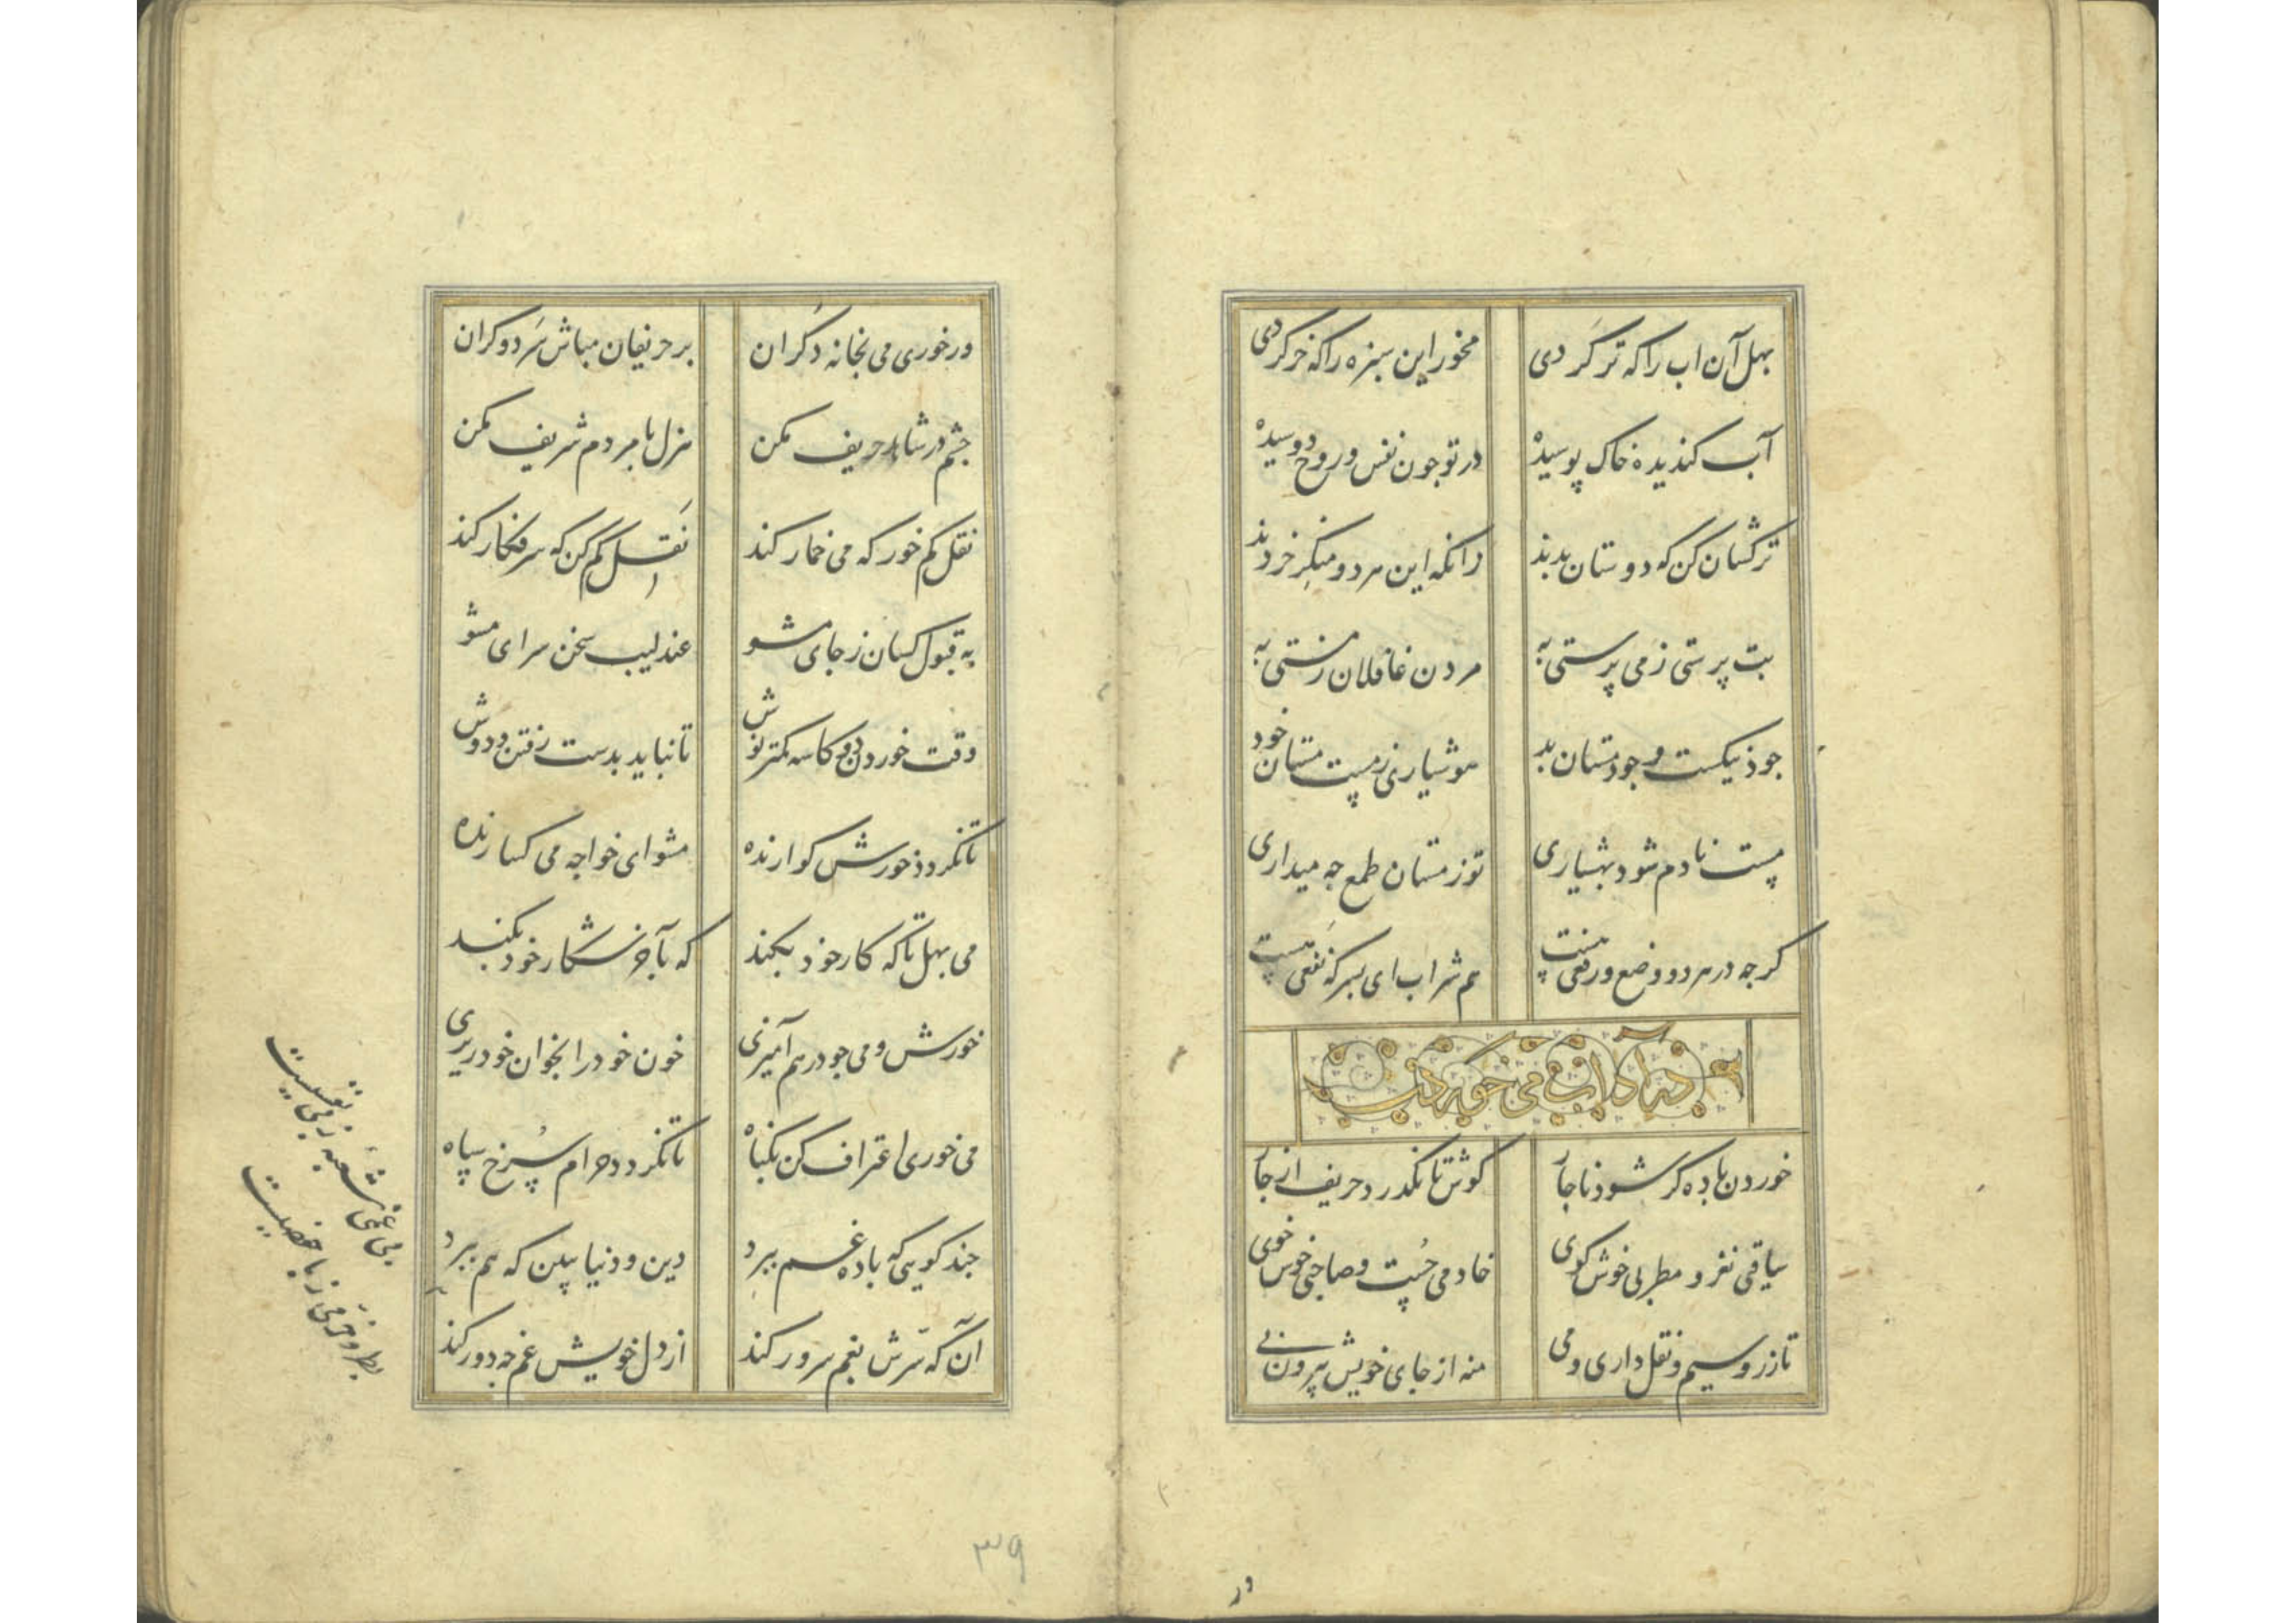 بهل آن اب را که تر کردی مخور این سبزه را که خر کردی
آب کندیده خاک پوسیده در تو جون نفس و روح دوسیده
ترکشان کن که دوستان بدند زانکه این هر دو منکر خردند
بت پرستی ز می پرستی به مردن غافلان ز مستی به
جود نیکست و جود مستان بد هوشیاری ز مست مستان خود
مست نادم شود بهشیاری تو ز مستان طمع جه میداری
کرجه در هر دو وضع و رفعی هست هم شراب ای پسر که نفعی هست
در آداب می خوردن
خوردن باده کر شود ناجار کوش تا نکذرد حریف از جار
ساقی نغز و مطربی خوش کوی خادمی جست و صاحبی خوش خوی
تا زر و سیم و نقل داری و می منه از جای خویش بیرون پی
ور
ور خوری می بخانه دکران بر حریفان مباش سرد و کران
جشم در شاهد حریف مکن هزل با مردم شریف مکن
نقل کم خور که می خمار کند نقل کم کن که سر فکار کند
به قبول کسان ز جای مشو عندلیب سخن سرای مشو
وقت خوردن دو کاسه کمتر نوش تا نباید بدست رفتن و دوش
تا نکردد خورش کوارنده مشو ای خواجه می کسارنده
می بهل تا که کار خود بکند که بآخر شکار خود بکند
خورش و می جو در هم آمیزی خون خود را بخوان خود ریزی
می خوری اعتراف کن بکناه تا نکردد حرام سرخ سیاه
جند کویی که باده غم ببرد دین و دنیا ببین که هم ببرد
آن که سرش بغم سرور کند از دل خویش غم جه دور کند
بی غمی شعبه ز بی نفسیست
بطر و خرمی ز با خصیست
۳۹